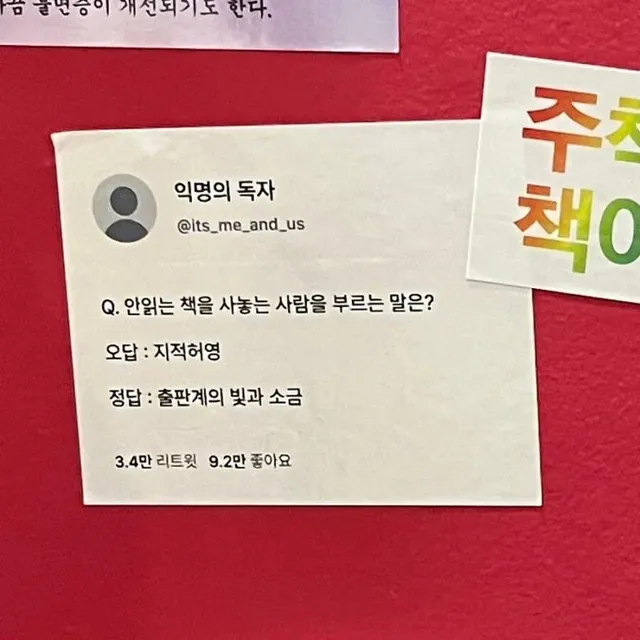 불면증이 개선되기도 한다.
익명의 독자
@its_me_and_us
Q. 안읽는 책을 사놓는 사람을 부르는 말은?
오답 : 지적허영
정답 : 출판계의 빛과 소금
3.4만 리트윗 9.2만 좋아요
주책
책이